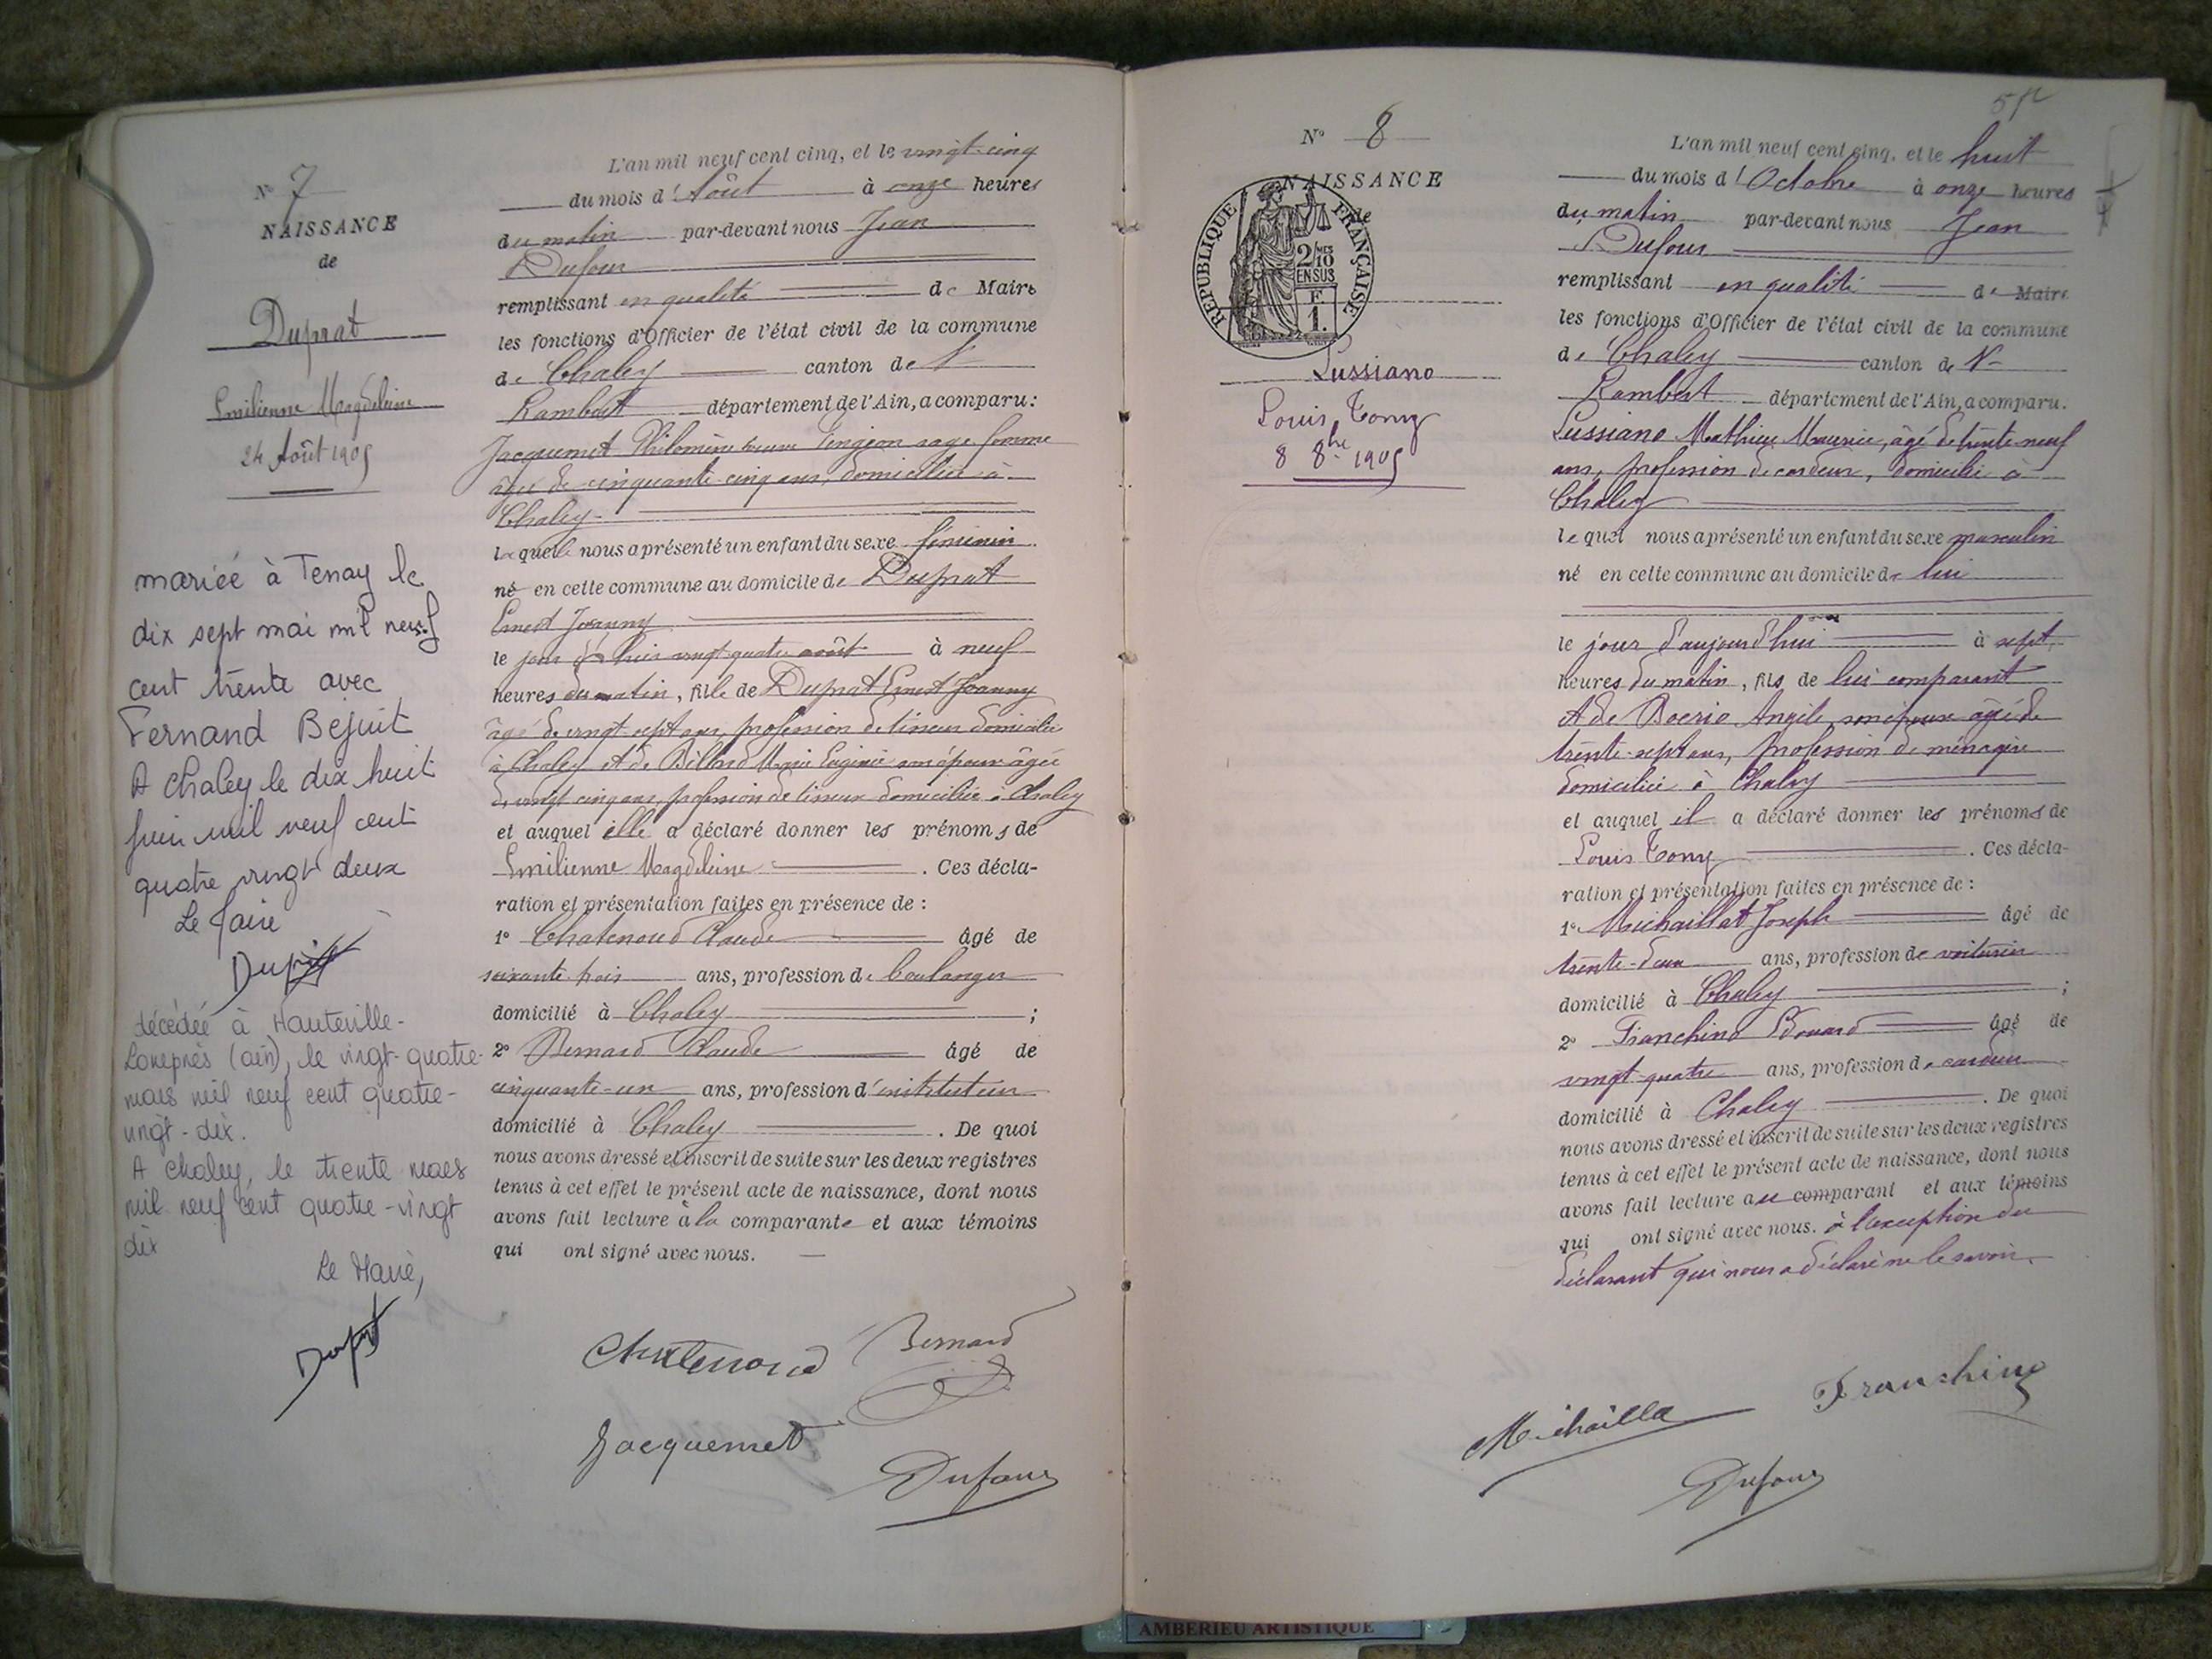 N° 7
NAISSANCE
de
Duprat
Emilienne Magdeleine
24 Août 1905
mariée à Tenay le
dix sept mai mil neuf
cent trente avec
Fernand Bejuit
A Chaley le dix huit
juin mil neuf cent
quatre vingt deux
Le Maire
décédée à Hauteville-
Lompnès (ain), le vingt-quatre
mars mil neuf cent quatre-
vingt-dix.
A Chaley, le trente mars
mil neuf cent quatre-vingt
dix
Le Maire,
L'an mil neuf cent cinq, et le vingt-cinq
du mois d'Août à onze heures
du matin par-devant nous Jean
Dufour
remplissant en qualité de Maire
les fonctions d'Officier de l'état civil de la commune
de Chaley canton de St
Rambert département de l'Ain, a comparu:
Jacquemet Philomène veuve Pingeon sage-femme
âgée de cinquante-cinq ans, domiciliée à
Chaley
laquelle nous a présenté un enfant du sexe féminin
né en cette commune au domicile de Duprat
Ernest Joanny
le jour d'hier vingt quatre août à neuf
heures du matin, fille de Duprat Ernest Joanny
âgé de vingt sept ans, profession de tisseur domicilié
à Chaley et de Billard Marie Eugénie son épouse âgée
de vingt cinq ans, profession de tisseur domiciliée à Chaley
et auquel elle a déclaré donner les prénoms de
Emilienne Magdeleine. Ces décla-
ration et présentation faites en présence de :
1° Chatenoud Claude âgé de
soixante trois ans, profession de boulanger
domicilié à Chaley ;
2° Bernard Claude âgé de
cinquante-un ans, profession d'instituteur
domicilié à Chaley. De quoi
nous avons dressé et inscrit de suite sur les deux registres
tenus à cet effet le présent acte de naissance, dont nous
avons fait lecture à la comparante et aux témoins
qui ont signé avec nous.
Chatenoud Bernard
Jacquemet
Dufour
51
N° 8
NAISSANCE
de
RÉPUBLIQUE FRANÇAISE
2/10 MES
EN SUS
F
1.
Lussiano
Louis Tony
8 8bre 1905
L'an mil neuf cent cinq, et le huit
du mois d'Octobre à onze heures
du matin par-devant nous Jean
Dufour
remplissant en qualité de Maire
les fonctions d'Officier de l'état civil de la commune
de Chaley canton de St
Rambert département de l'Ain, a comparu.
Lussiano Mathieu Maurice, âgé de trente neuf
ans, profession de cardeur, domicilié à
Chaley
lequel nous a présenté un enfant du sexe masculin
né en cette commune au domicile de lui
le jour d'aujourd'hui à sept
heures du matin, fils de lui comparant
et de Boerio Angèle, son épouse âgée de
trente-sept ans, profession de ménagère
domiciliée à Chaley
et auquel il a déclaré donner les prénoms de
Louis Tony. Ces décla-
ration et présentation faites en présence de :
1° Michaillat Joseph âgé de
trente-deux ans, profession de voiturier
domicilié à Chaley ;
2° Franchino Edouard âgé de
vingt-quatre ans, profession de cardeur
domicilié à Chaley. De quoi
nous avons dressé et inscrit de suite sur les deux registres
tenus à cet effet le présent acte de naissance, dont nous
avons fait lecture au comparant et aux témoins
qui ont signé avec nous. à l'exception du
déclarant qui nous a déclaré ne le savoir.
Michailla Franchino
Dufour
AMBERIEU ARTISTIQUE